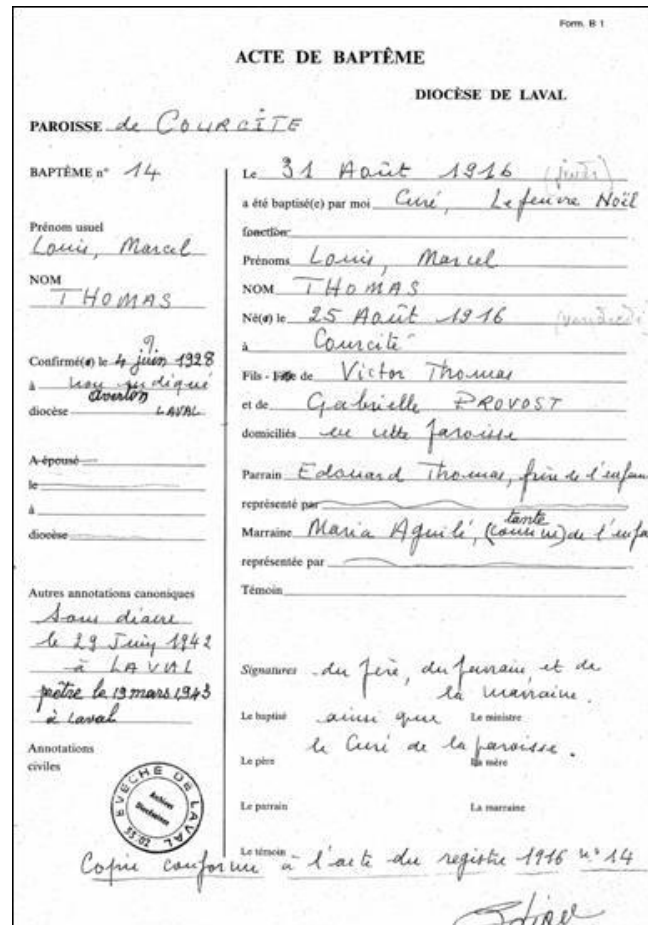 Form. B 1
ACTE DE BAPTÊME
DIOCÈSE DE LAVAL
PAROISSE de COURCITE
BAPTÊME n° 14
Prénom usuel
Louis, Marcel
NOM
THOMAS
Confirmé(e) le 4 juin 1928
?
à non indiqué
averton
diocèse LAVAL
A épousé
le
à
diocèse
Autres annotations canoniques
Sous diacre
le 29 Juin 1942
à LAVAL
prêtre le 19 mars 1943
à Laval
Annotations
civiles
EVÊCHE DE LAVAL
Archives
Diocésaines
53-02
Le 31 Août 1916 (jeudi)
a été baptisé(e) par moi Curé, Lefeuvre Noël
fonction
Prénoms Louis, Marcel
NOM THOMAS
Né(e) le 25 Août 1916 (vendredi)
à Courcité
Fils - Fille de Victor Thomas
et de Gabrielle PROVOST
domiciliés en cette paroisse
Parrain Edouard Thomas, frère de l'enfan
représenté par
tante
Marraine Maria Aguilé, (cousine) de l'enfa
représentée par
Témoin
Signatures du père, du parrain et de
la marraine.
Le baptisé ainsi que Le ministre
le Curé de la paroisse.
Le père La mère
Le parrain La marraine
Le témoin
Copie conforme à l'acte du registre 1916 n° 14